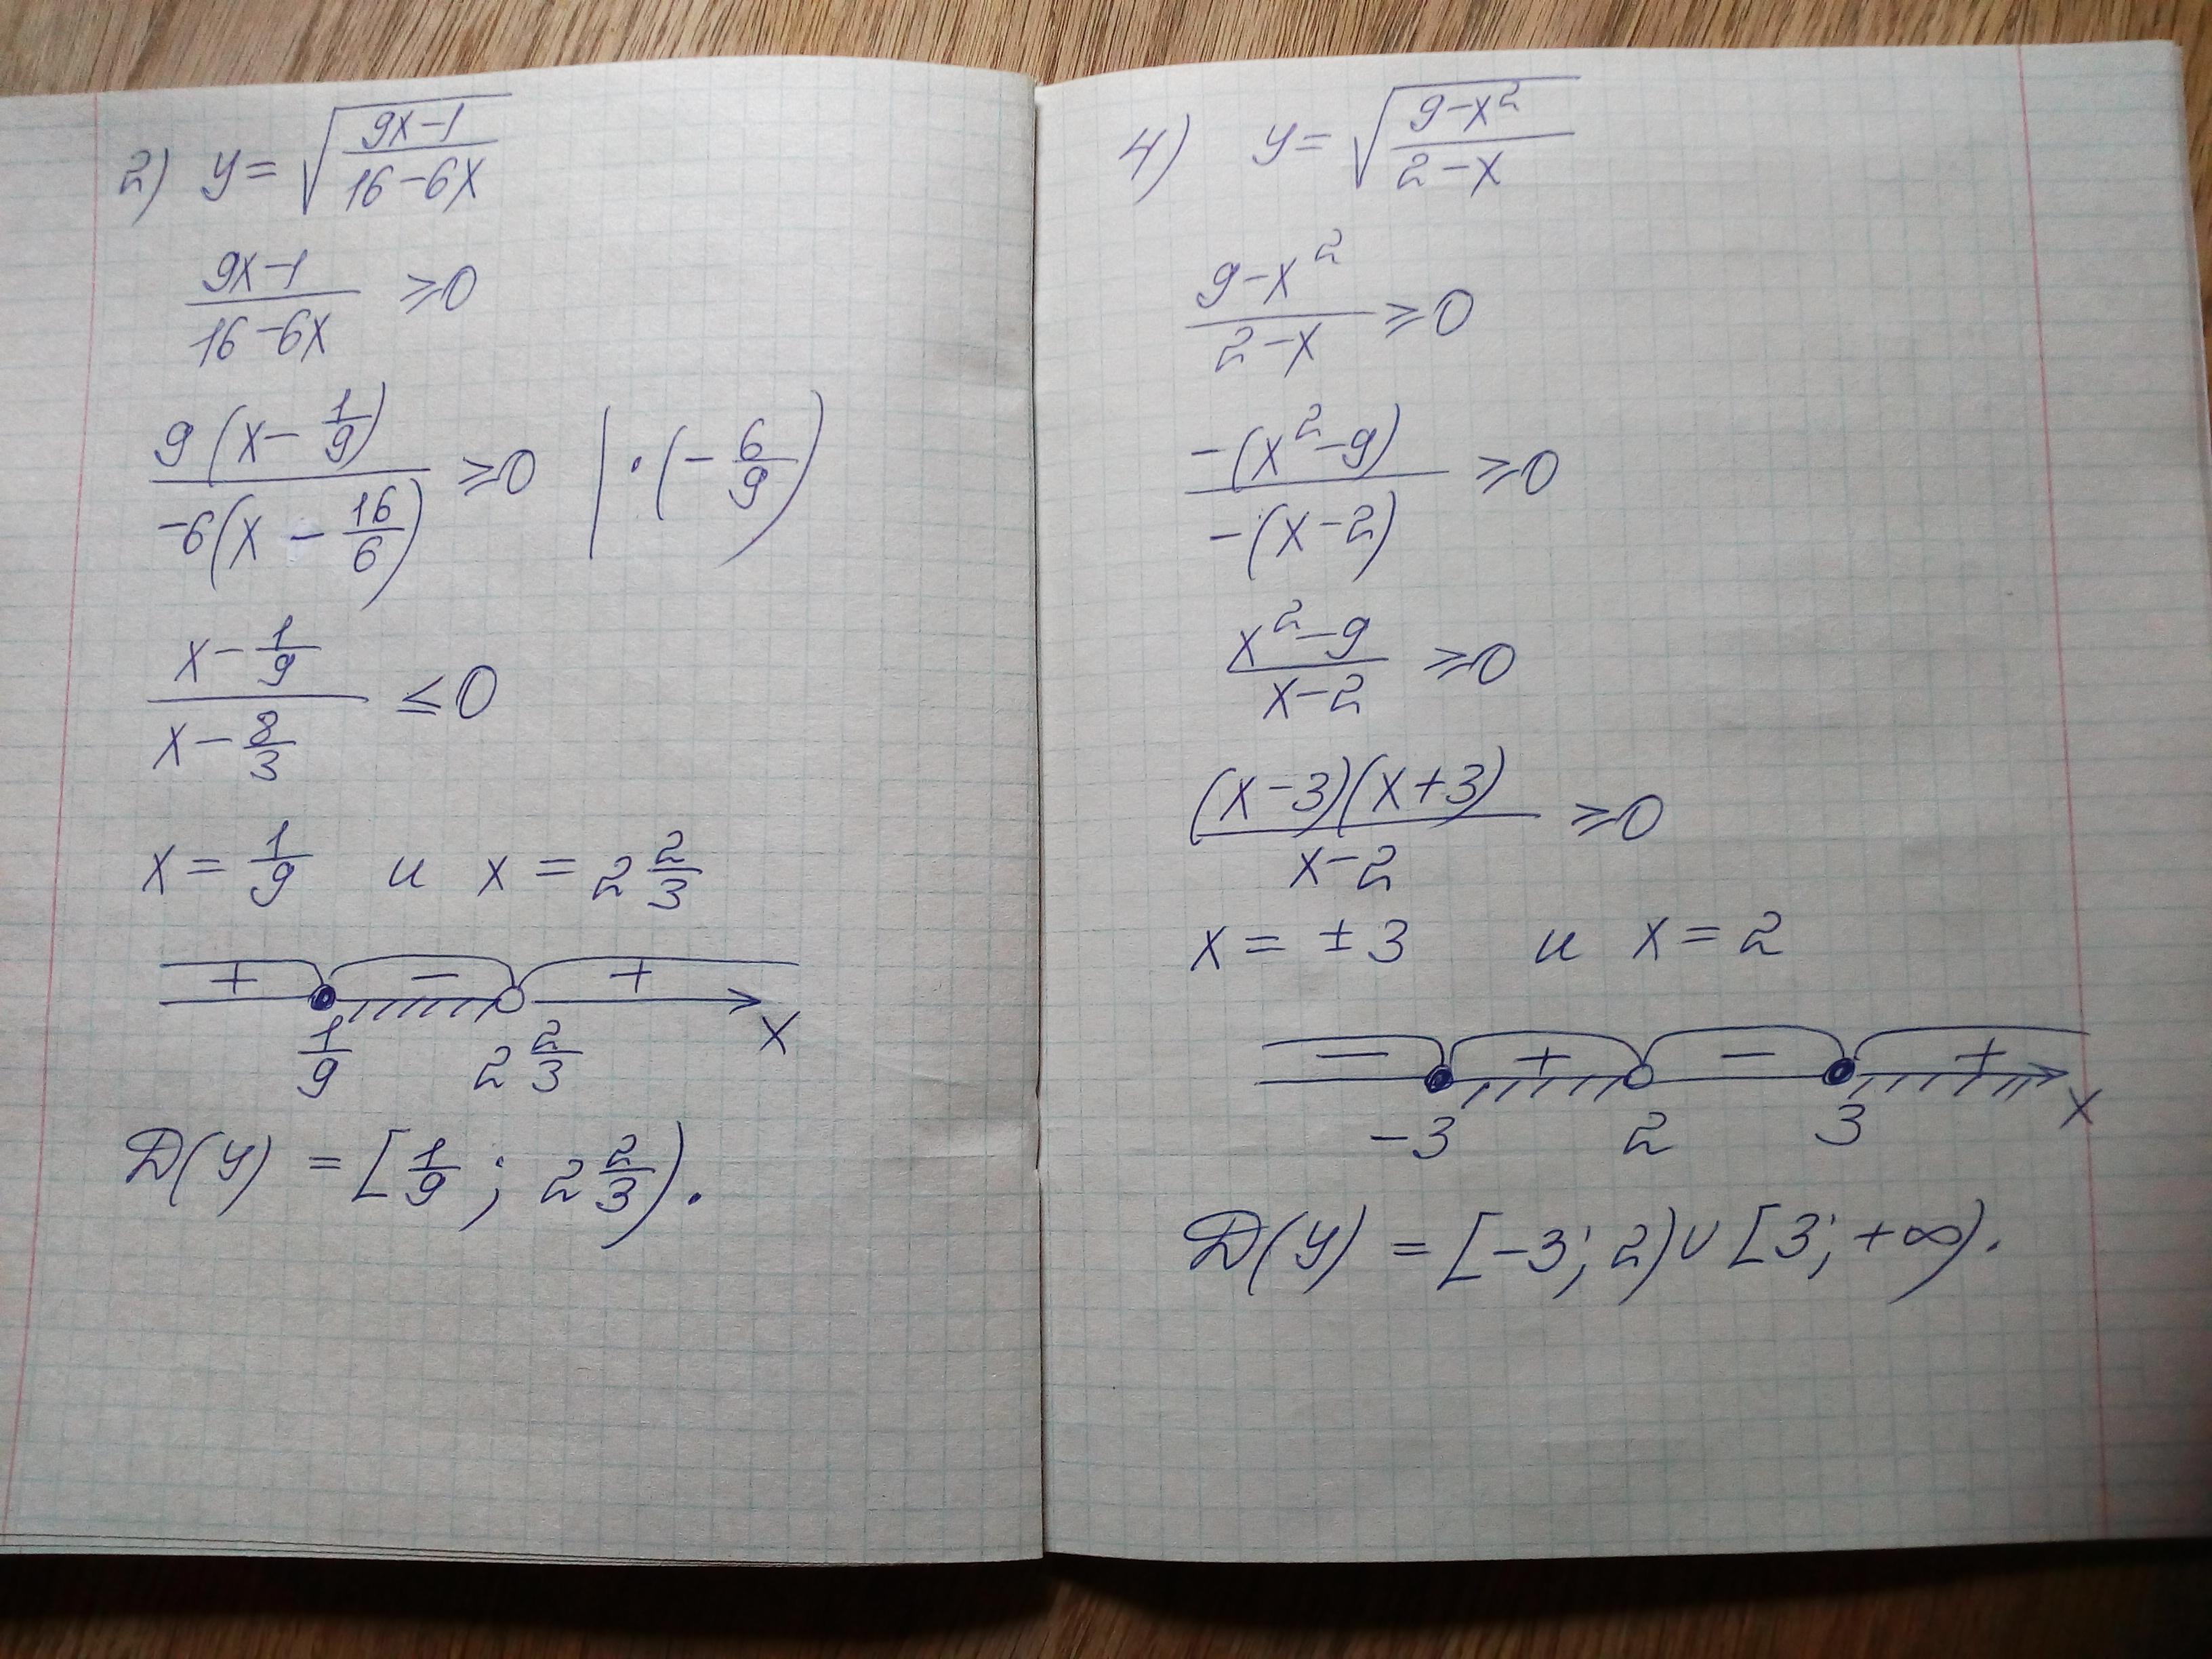 2) y = √((9x-1)/(16-6x))
(9x-1)/(16-6x) ⩾0
(9(x-1/9))/(-6(x-16/6)) ⩾0 | ·(-6/9)
(x-1/9)/(x-8/3) ⩽0
x = 1/9 и x = 2 2/3
+ - +
1/9 2 2/3 x
D(y) = [1/9; 2 2/3).
4) y = √((9-x²)/(2-x))
(9-x²)/(2-x) ⩾0
(-(x²-9))/(-(x-2)) ⩾0
(x²-9)/(x-2) ⩾0
((x-3)(x+3))/(x-2) ⩾0
x = ±3 и x = 2
- + - +
-3 2 3 x
D(y) = [-3; 2)∪[3; +∞).